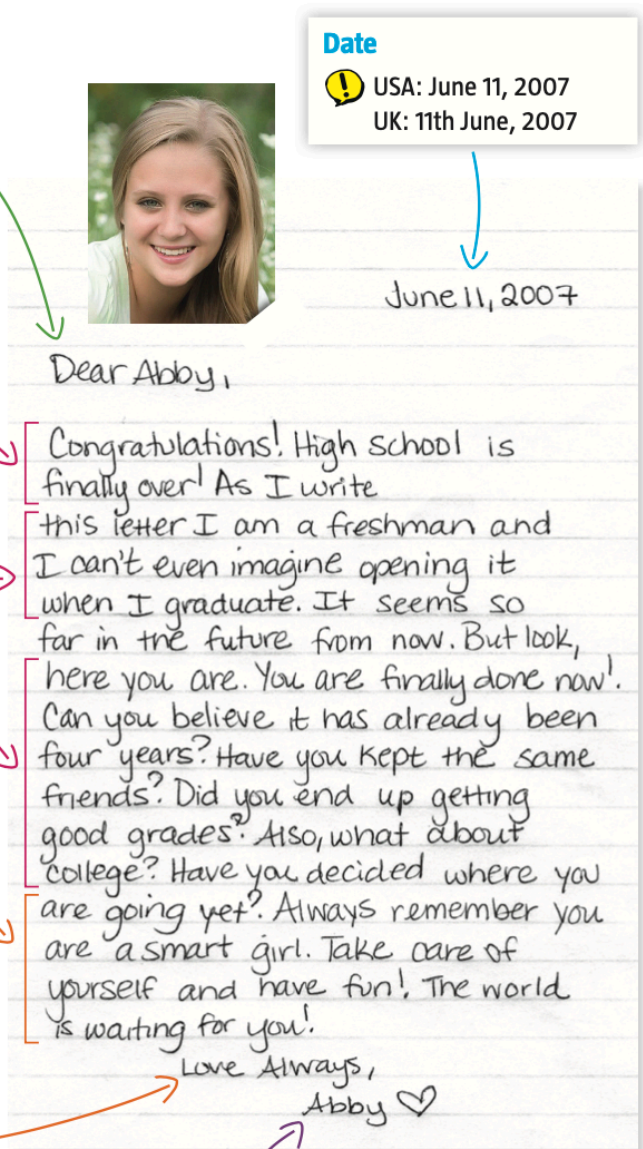 Date
! USA: June 11, 2007
UK: 11th June, 2007
June 11, 2007
Dear Abby,
Congratulations! High School is
finally over! As I write
this letter I am a freshman and
I can't even imagine opening it
when I graduate. It seems so
far in the future from now. But look,
here you are. You are finally done now!
Can you believe it has already been
four years? Have you kept the same
friends? Did you end up getting
good grades? Also, what about
college? Have you decided where you
are going yet? Always remember you
are a smart girl. Take care of
yourself and have fun! The world
is waiting for you!
Love Always,
Abby ♡